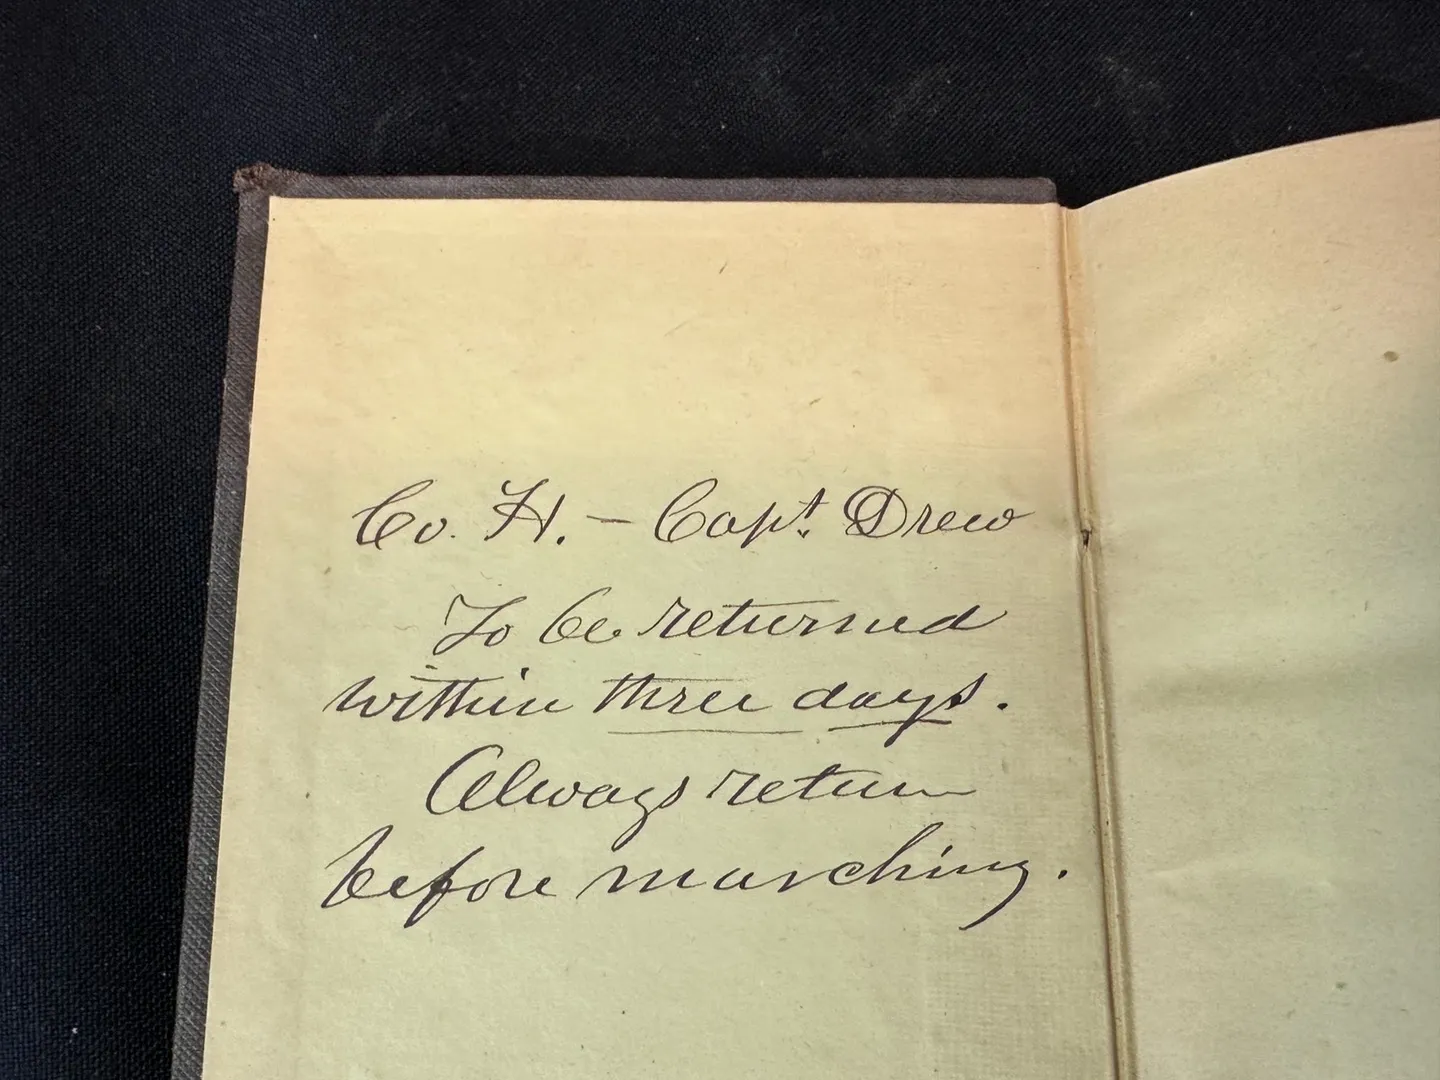 Co. H. – Capt. Drew
To be returned
within three days.
Always return
before marching.